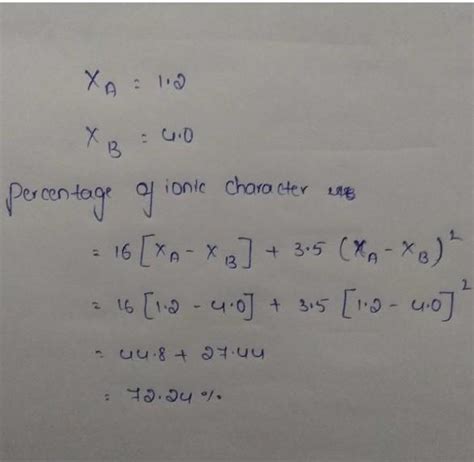 X_A = 1.2
X_B = 4.0
Percentage of ionic character
= 16 [X_A - X_B] + 3.5 (X_A - X_B)^2
= 16 [1.2 - 4.0] + 3.5 [1.2 - 4.0]^2
= 44.8 + 27.44
= 72.24 %